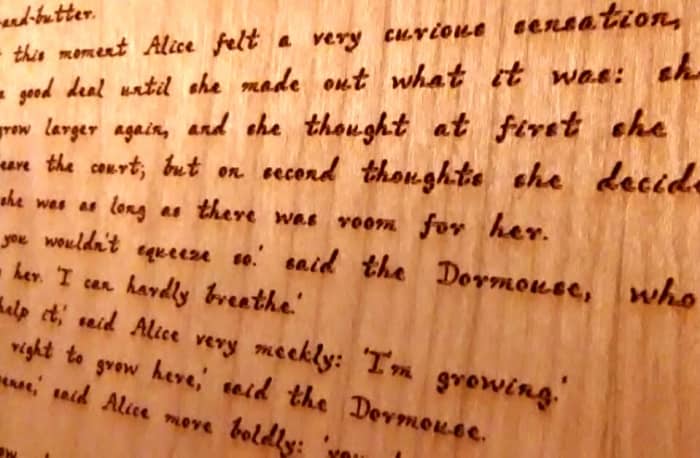 -and-butter.
this moment Alice felt a very curious sensation,
good deal until she made out what it was: sh
row larger again, and she thought at first she
eave the court; but on second thoughts she decid
she was as long as there was room for her.
you wouldn't squeeze so.' said the Dormouse, who
her. 'I can hardly breathe.'
help it,' said Alice very meekly: 'I'm growing.'
right to grow here,' said the Dormouse.
ense,' said Alice more boldly: 'you